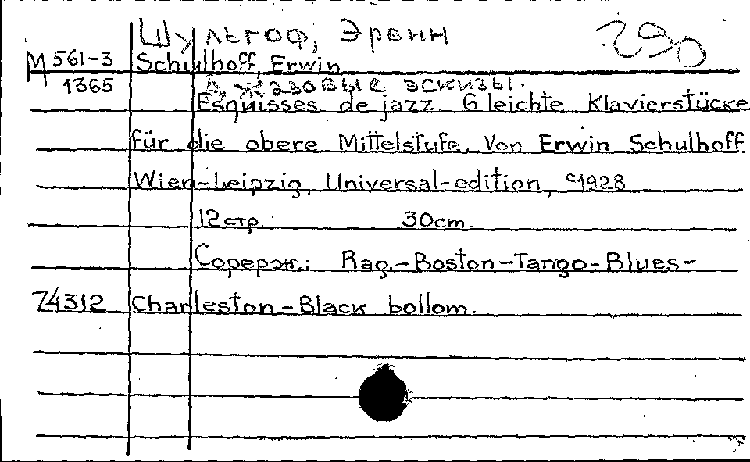 Шульгоф, Эрвин 290
М 561-3 Schulhoff, Erwin
1365 Джазовые эскизы.
Esquisses de jazz. 6 leichte Klavierstücke
für die obere Mittelstufe. Von Erwin Schulhoff
Wien-Leipzig, Universal-edition, c1928
12стр. 30cm
Содерж.: Rag.-Boston-Tango-Blues-
74312 Charleston-Black bollom.